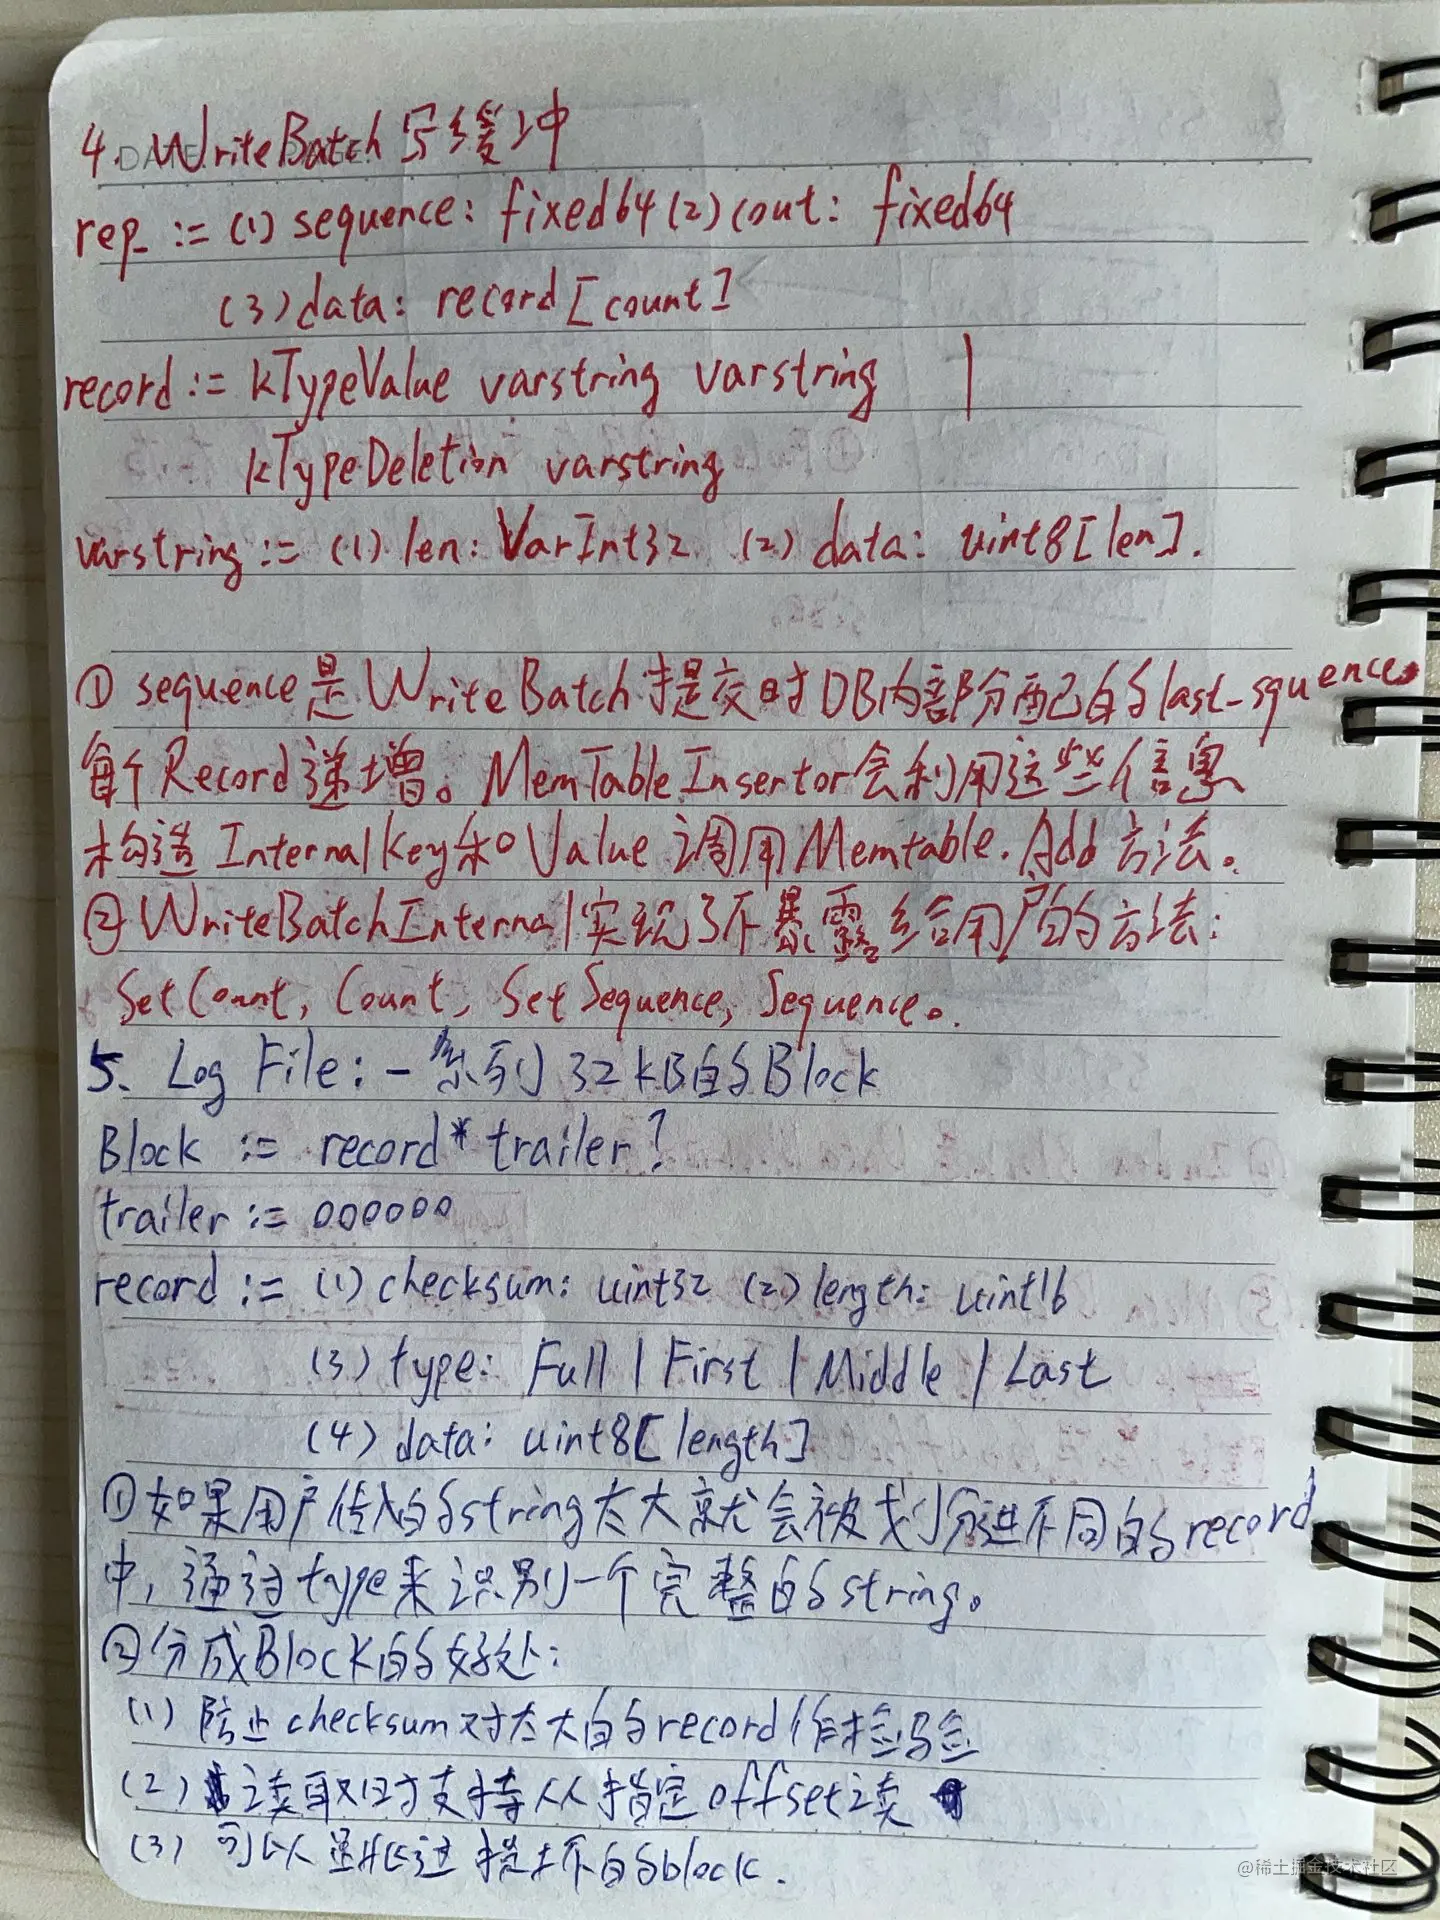 4. WriteBatch写缓冲
rep_ := (1) sequence: fixed64 (2) cout: fixed64
(3) data: record[count]
record := kTypeValue varstring varstring |
kTypeDeletion varstring
varstring := (1) len: VarInt32 (2) data: uint8[len].
① sequence是WriteBatch提交时DB内部分配的last_squence
每个Record递增。MemTableInsertor会利用这些信息
构造InternalKey和Value调用Memtable.Add方法。
②WriteBatchInternal实现了不暴露给用户的方法:
SetCount, Count, SetSequence, Sequence。
5. Log File: 一系列32kB的Block
Block := record* trailer?
trailer := 000000
record := (1) checksum: uint32 (2) length: uint16
(3) type: Full | First | Middle | Last
(4) data: uint8[length]
①如果用户传入的string太大就会被划分进不同的record
中,通过type来识别一个完整的string。
②分成Block的好处:
(1) 防止checksum对太大的record作检验
(2) 读取时支持从指定offset读
(3) 可以跳过损坏的block.
@稀土掘金技术社区